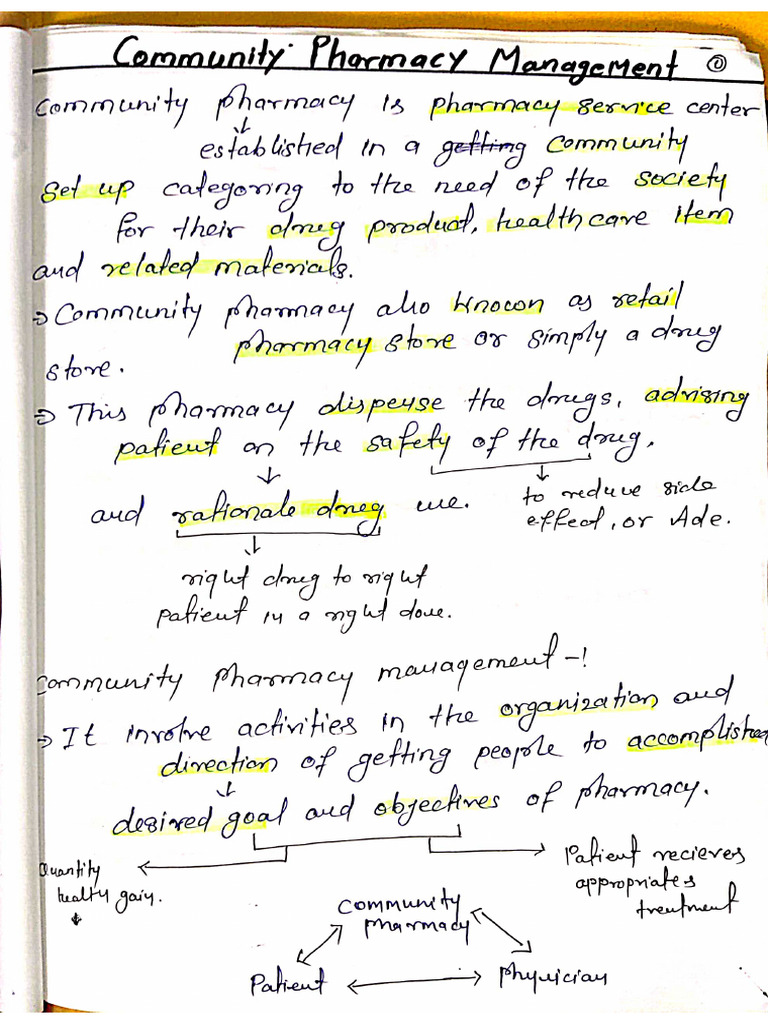 Community Pharmacy Management ①
Community pharmacy is pharmacy service center
↓
established in a getting community
set up categoring to the need of the society
for their drug product, health care item
and related materials.
⇒ Community pharmacy also known as retail
pharmacy store or simply a drug
store.
⇒ This pharmacy dispense the drugs, advising
patient on the safety of the drug,
↓ ↓
and rationale drug use. to reduce side
effect, or Ade.
↓
right drug to right
patient in a right dose.
Community pharmacy management -!
⇒ It involve activities in the organization and
direction of getting people to accomplished
↓
desired goal and objectives of pharmacy.
Quantity ← → Patient recieves
healty gain. appropriates
↓ treatment
Community
pharmacy
Patient ↔ Physician